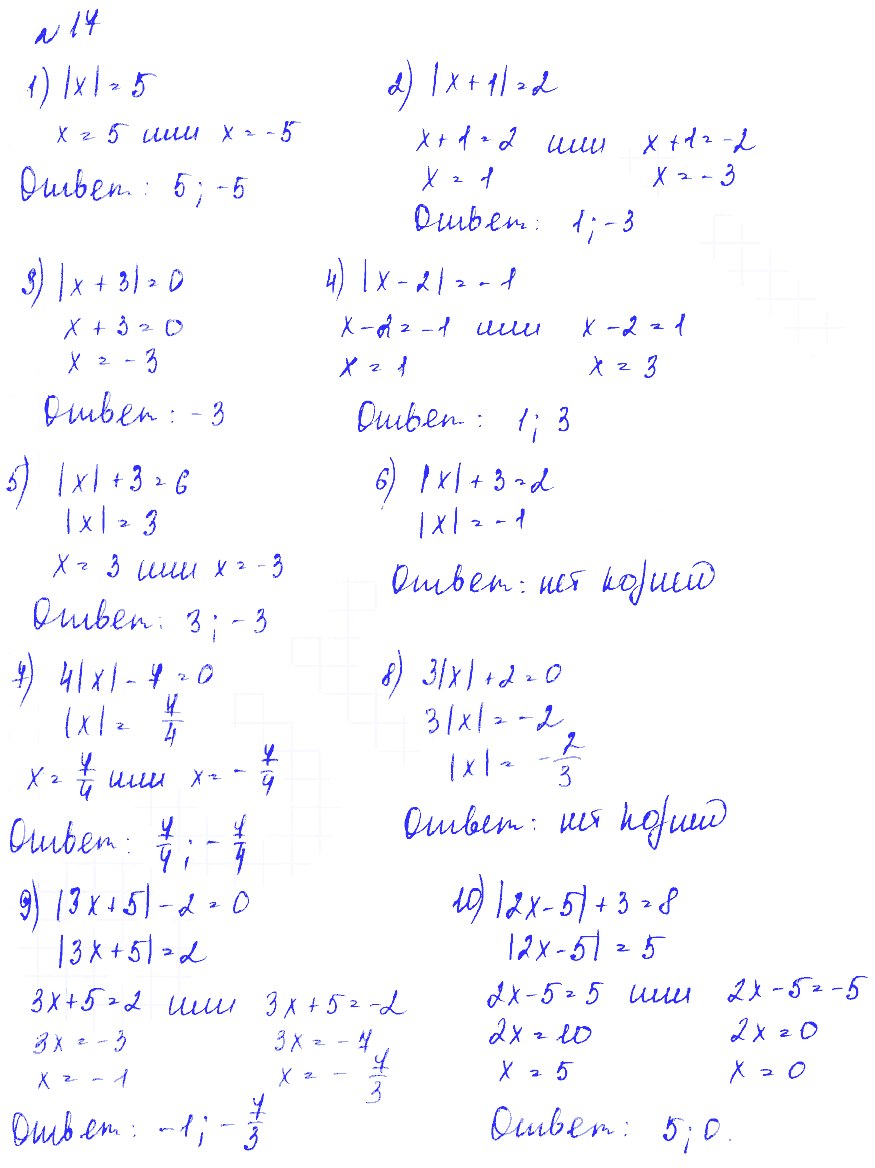 № 17
1) |x| = 5
x = 5 или x = -5
Ответ: 5; -5
2) |x+1| = 2
x+1 = 2 или x+1 = -2
x = 1 x = -3
Ответ: 1; -3
3) |x+3| = 0
x+3 = 0
x = -3
Ответ: -3
4) |x-2| = -1
x-2 = -1 или x-2 = 1
x = 1 x = 3
Ответ: 1; 3
5) |x|+3 = 6
|x| = 3
x = 3 или x = -3
Ответ: 3; -3
6) |x|+3 = 2
|x| = -1
Ответ: нет корней
7) 4|x|-7 = 0
|x| = 7/4
x = 7/4 или x = -7/4
Ответ: 7/4; -7/4
8) 3|x|+2 = 0
3|x| = -2
|x| = -2/3
Ответ: нет корней
9) |3x+5|-2 = 0
|3x+5| = 2
3x+5 = 2 или 3x+5 = -2
3x = -3 3x = -7
x = -1 x = -7/3
Ответ: -1; -7/3
10) |2x-5|+3 = 8
|2x-5| = 5
2x-5 = 5 или 2x-5 = -5
2x = 10 2x = 0
x = 5 x = 0
Ответ: 5; 0.